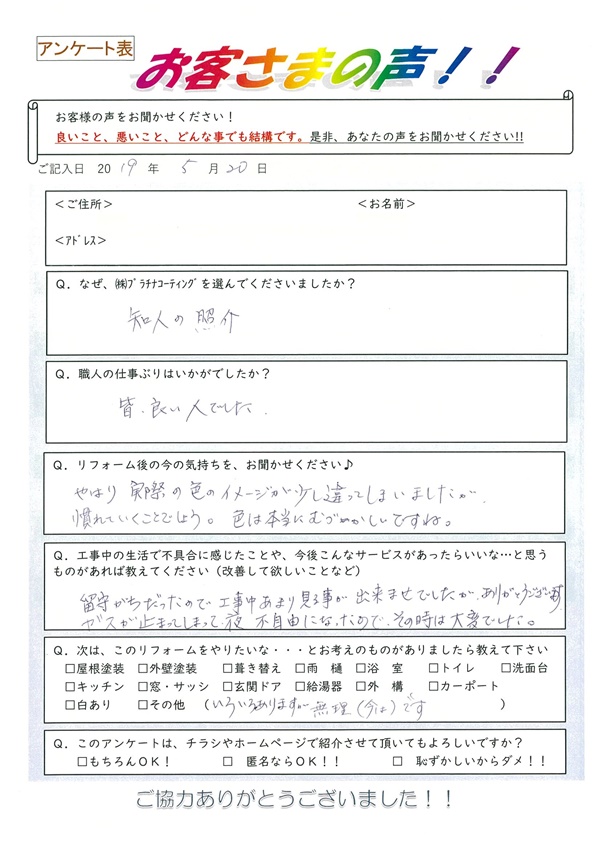 アンケート表
お客さまの声！！
お客様の声をお聞かせください！
良いこと、悪いこと、どんな事でも結構です。是非、あなたの声をお聞かせください!!
ご記入日 2019 年 5 月 20 日
＜ご住所＞ ＜お名前＞
＜ｱﾄﾞﾚｽ＞
Q．なぜ、㈱ﾌﾟﾗﾁﾅｺｰﾃｨﾝｸﾞを選んでくださいましたか？
知人の照介
Q．職人の仕事ぶりはいかがでしたか？
皆、良い人でした．
Q．リフォーム後の今の気持ちを、お聞かせください♪
やはり 実際の色のイメージが少し違ってしまいましたが、
慣れていくことでしょう。色は本当にむづめかしいですね。
Q．工事中の生活で不具合に感じたことや、今後こんなサービスがあったらいいな…と思う
ものがあれば教えてください（改善して欲しいことなど）
留守がちだったので工事中あまり見る事が出来ませでしたが、ありがとうございます
ガスが止まってしまって、夜 不自由になったので、その時は大変でした。
Q．次は、このリフォームをやりたいな・・・とお考えのものがありましたら教えて下さい
□屋根塗装 □外壁塗装 □葺き替え □雨 樋 □浴 室 □トイレ □洗面台
□キッチン □窓・サッシ □玄関ドア □給湯器 □外 構 □カーポート
□白あり □その他 （いろいろありますが 無理（今は）です ）
Q．このアンケートは、チラシやホームページで紹介させて頂いてもよろしいですか？
□もちろんＯＫ！ □ 匿名ならＯＫ！！ □ 恥ずかしいからダメ！！
ご協力ありがとうございました！！